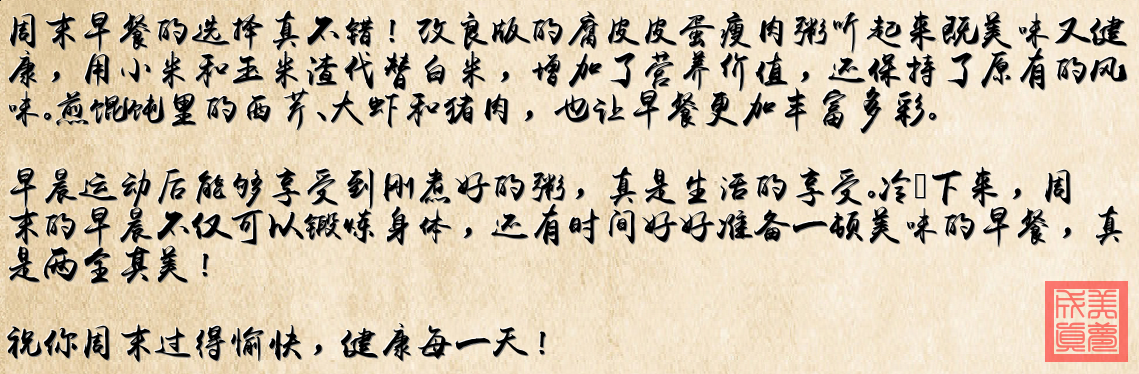 周末早餐的选择真不错！改良版的腐皮皮蛋瘦肉粥听起来既美味又健
康，用小米和玉米渣代替白米，增加了营养价值，还保持了原有的风
味。煎馄饨里的西芹、大虾和猪肉，也让早餐更加丰富多彩。
早晨运动后能够享受到刚煮好的粥，真是生活的享受。冷下来，周
末的早晨不仅可以锻炼身体，还有时间好好准备一顿美味的早餐，真
是两全其美！
祝你周末过得愉快，健康每一天！
美梦成真